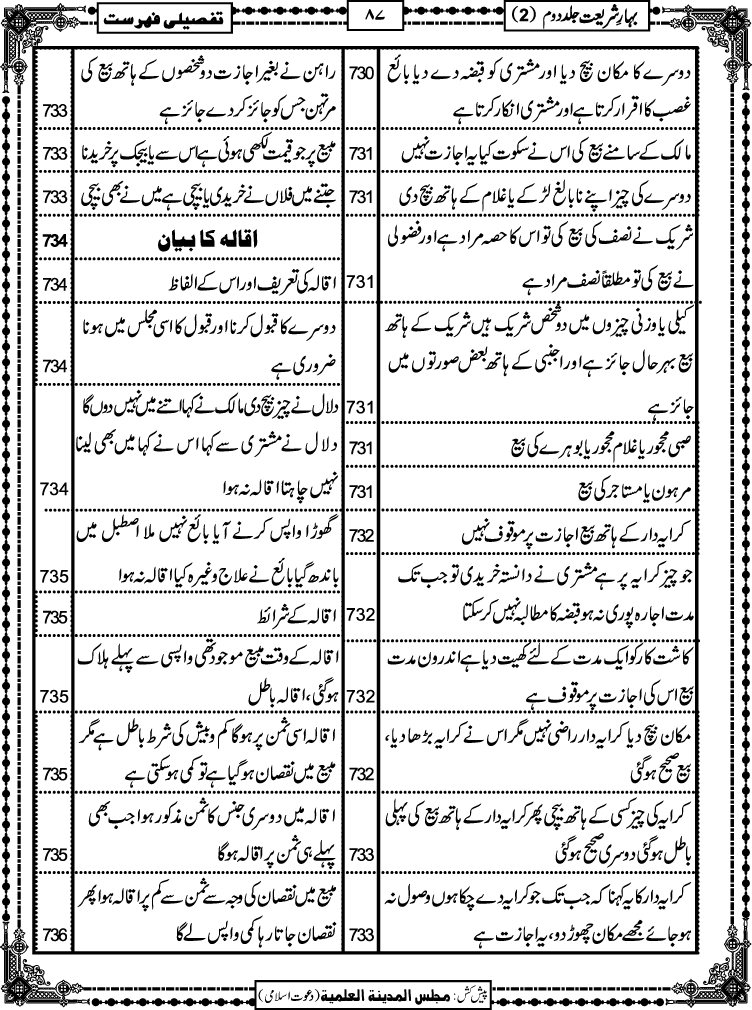 بہارِ شریعت جلد دوم (2)
۸۷
تفصیلی فہرست
دوسرے کا مکان بیچ دیا اور مشتری کو قبضہ دے دیا بائع
730
غصب کا اقرار کرتا ہے اور مشتری انکار کرتا ہے
مالک کے سامنے بیع کی اس نے سکوت کیا یہ اجازت نہیں
731
دوسرے کی چیز اپنے نابالغ لڑکے یا غلام کے ہاتھ بیچ دی
731
شریک نے نصف کی بیع کی تو اس کا حصہ مراد ہے اور فضولی
نے بیع کی تو مطلقاً نصف مراد ہے
731
کیلی یا وزنی چیزوں میں دو شخص شریک ہیں شریک کے ہاتھ
بیع بہرحال جائز ہے اور اجنبی کے ہاتھ بعض صورتوں میں
جائز ہے
731
صبی محجور یا غلام محجور یا بوہرے کی بیع
731
مرہون یا مستاجر کی بیع
731
کرایہ دار کے ہاتھ بیع اجازت پر موقوف نہیں
732
جو چیز کرایہ پر ہے مشتری نے دانستہ خریدی تو جب تک
مدت اجارہ پوری نہ ہو قبضہ کا مطالبہ نہیں کر سکتا
732
کاشت کار کو ایک مدت کے لئے کھیت دیا ہے اندرون مدت
بیع اس کی اجازت پر موقوف ہے
732
مکان بیچ دیا کرایہ دار راضی نہیں مگر اس نے کرایہ بڑھا دیا،
بیع صحیح ہو گئی
732
کرایہ کی چیز کسی کے ہاتھ بیچی پھر کرایہ دار کے ہاتھ بیع کی پہلی
باطل ہو گئی دوسری صحیح ہو گئی
733
کرایہ دار کا یہ کہنا کہ جب تک جو کرایہ دے چکا ہوں وصول نہ
ہو جائے مجھے مکان چھوڑ دو، یہ اجازت ہے
733
راہن نے بغیر اجازت دو شخصوں کے ہاتھ بیع کی
مرتہن جس کو جائز کر دے جائز ہے
733
مبیع پر جو قیمت لکھی ہوئی ہے اس سے یا بیجک پر خریدنا
733
جتنے میں فلاں نے خریدی یا بیچی ہے میں نے بھی بیچی
733
اقالہ کا بیان
734
اقالہ کی تعریف اور اس کے الفاظ
734
دوسرے کا قبول کرنا اور قبول کا اسی مجلس میں ہونا
ضروری ہے
734
دلال نے چیز بیچ دی مالک نے کہا اتنے میں نہیں دوں گا
دلال نے مشتری سے کہا اس نے کہا میں بھی لینا
نہیں چاہتا اقالہ نہ ہوا
734
گھوڑا واپس کرنے آیا بائع نہیں ملا اصطبل میں
باندھ گیا بائع نے علاج وغیرہ کیا اقالہ نہ ہوا
735
اقالہ کے شرائط
735
اقالہ کے وقت مبیع موجود تھی واپسی سے پہلے ہلاک
ہو گئی، اقالہ باطل
735
اقالہ اسی ثمن پر ہوگا کم وبیش کی شرط باطل ہے مگر
مبیع میں نقصان ہو گیا ہے تو کمی ہو سکتی ہے
735
اقالہ میں دوسری جنس کا ثمن مذکور ہوا جب بھی
پہلے ہی ثمن پر اقالہ ہوگا
735
مبیع میں نقصان کی وجہ سے ثمن سے کم پر اقالہ ہوا پھر
نقصان جاتا رہا کمی واپس لے گا
736
پیش کش: مجلس المدينة العلمية (دعوت اسلامی)